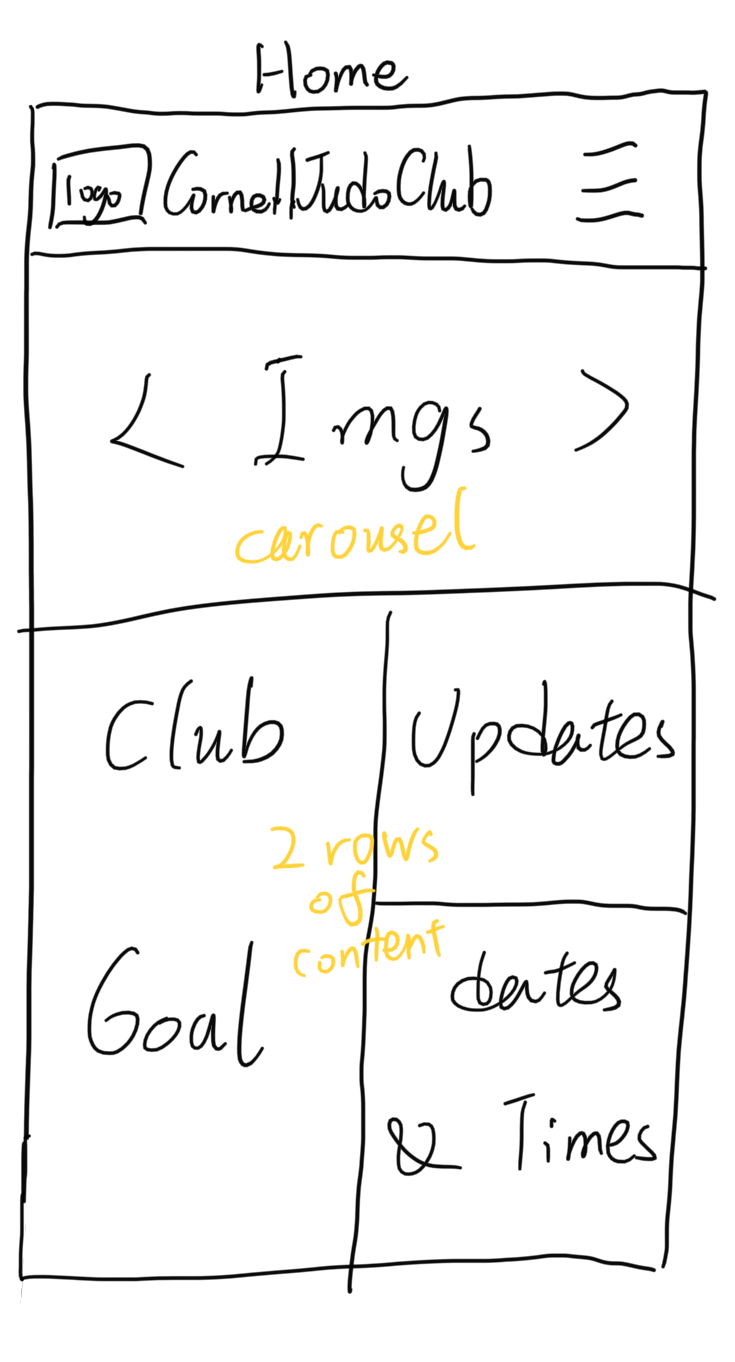 Home
logo CornellJudoClub
< Imgs >
carousel
Club
Goal
2 rows
of
content
Updates
dates
& Times